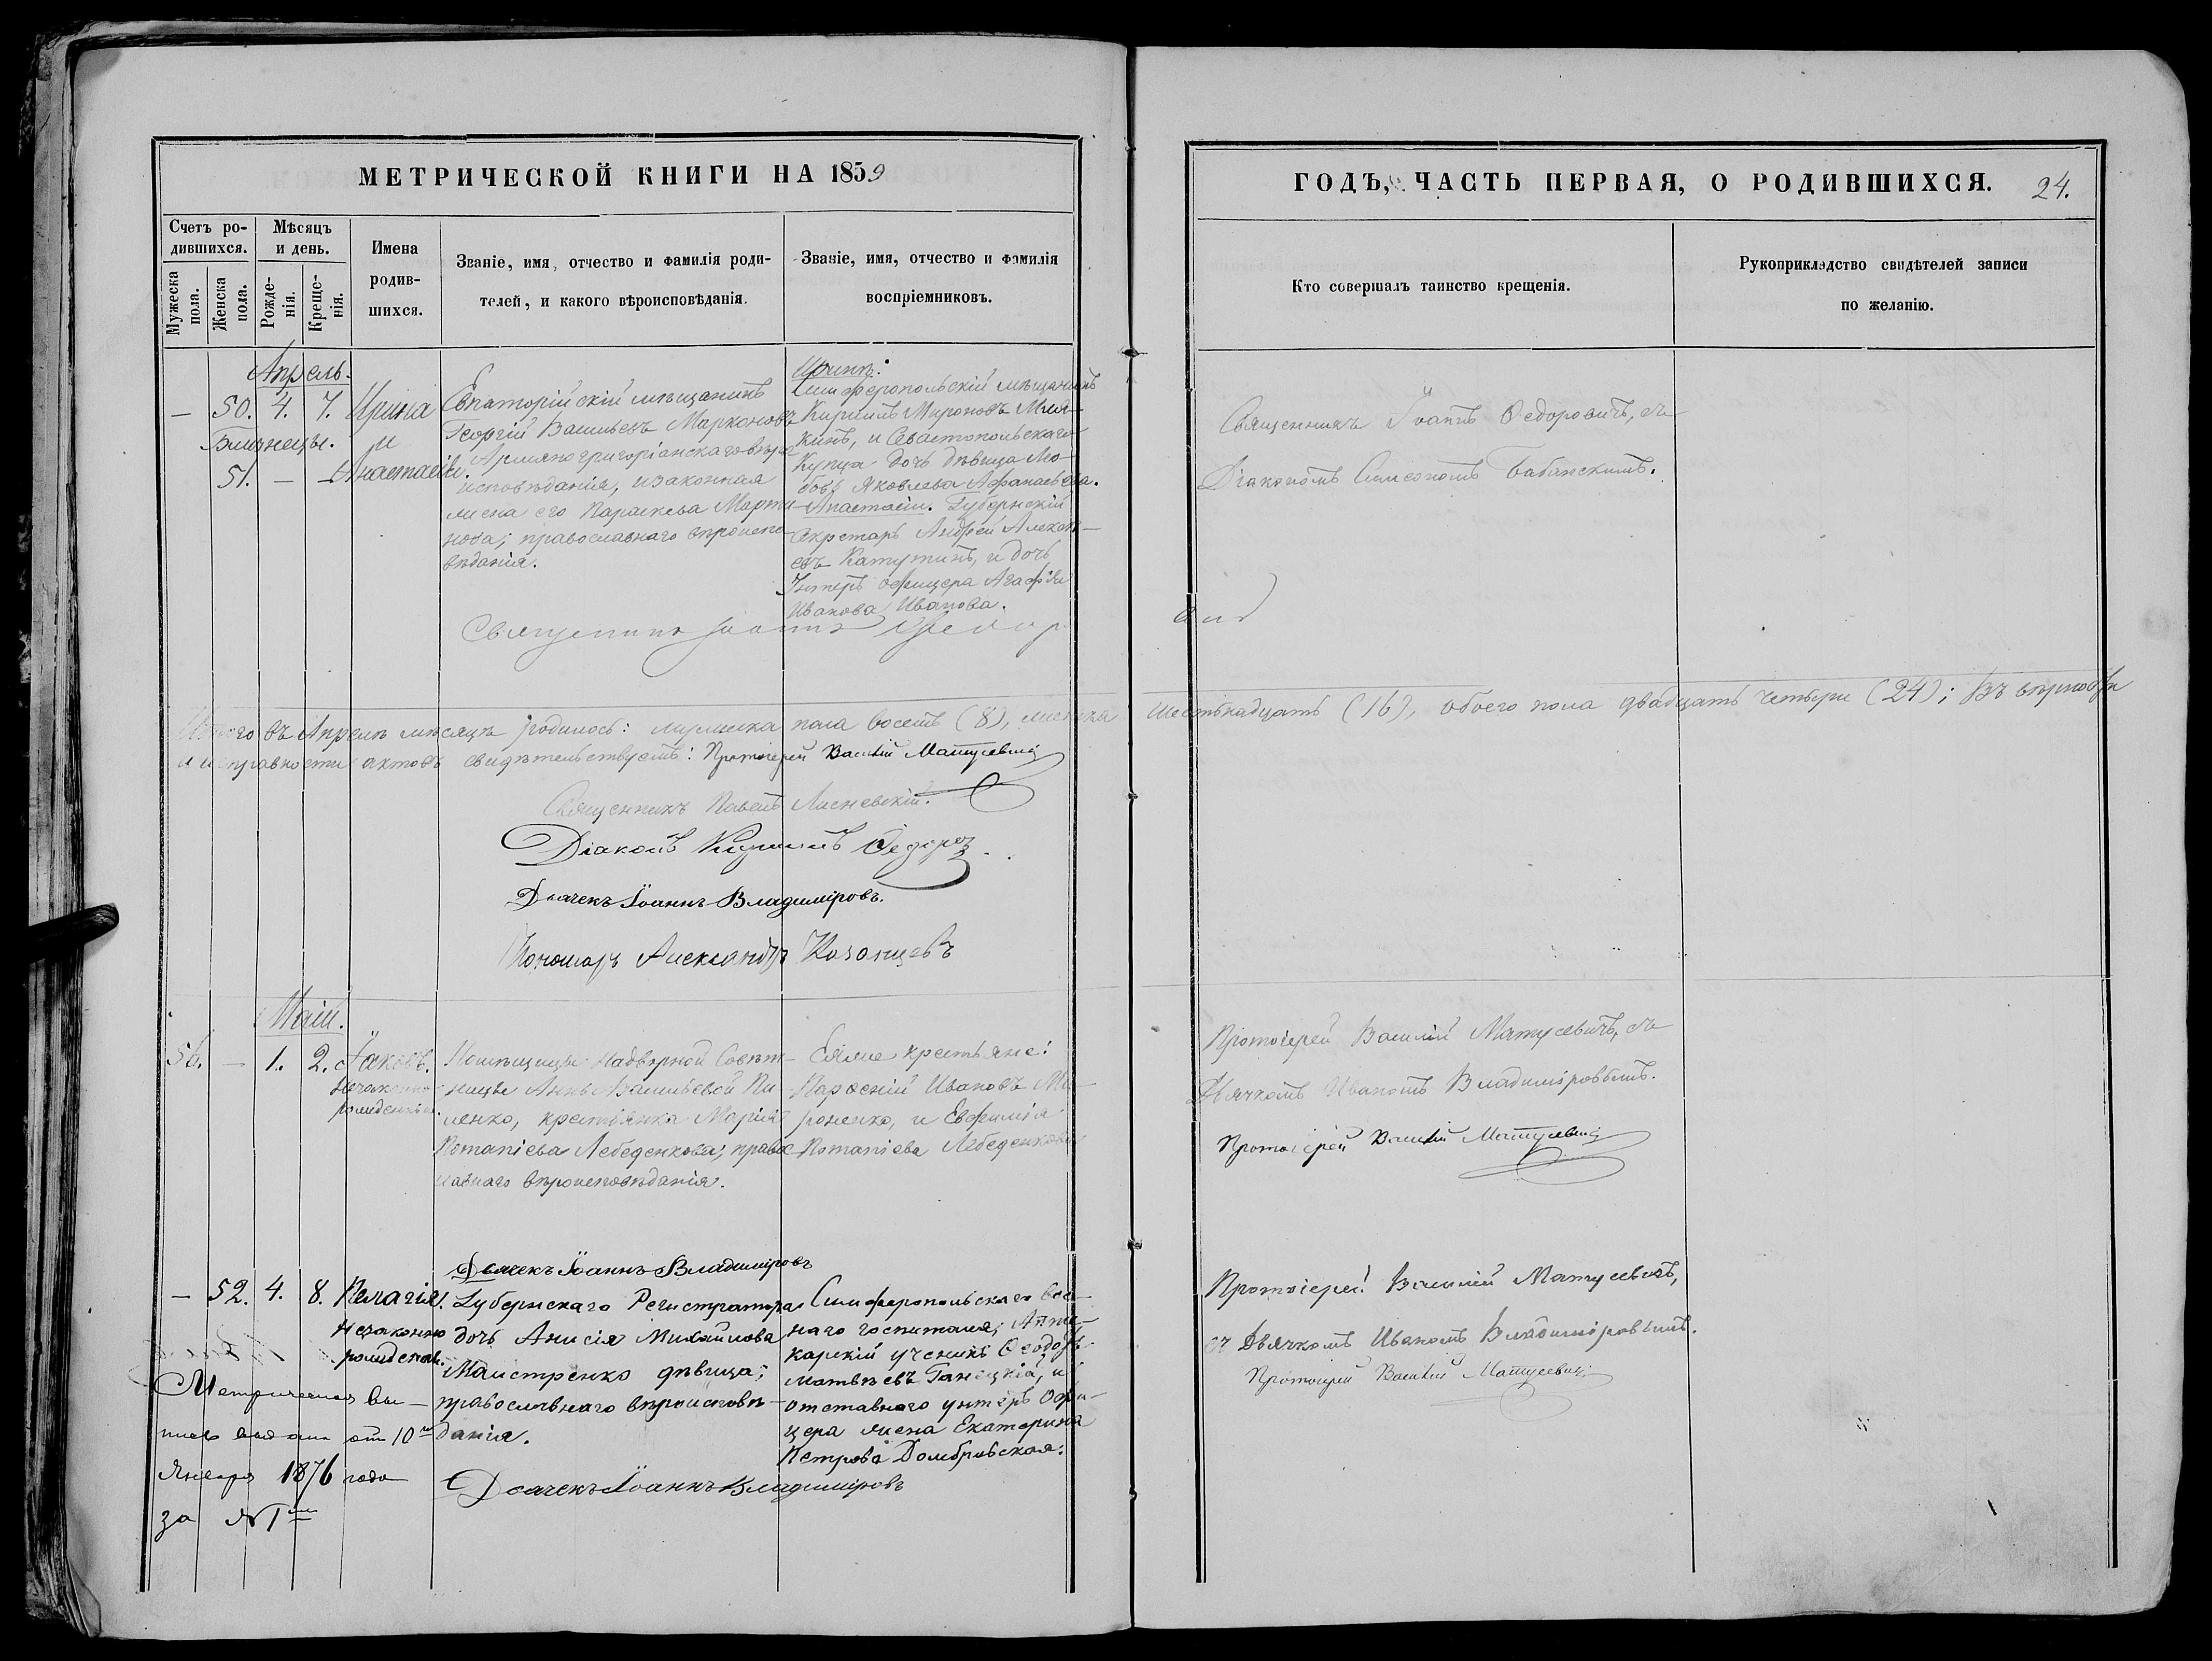 МЕТРИЧЕСКОЙ КНИГИ НА 1859
ГОДЪ, ЧАСТЬ ПЕРВАЯ, О РОДИВШИХСЯ. 24.
Счетъ ро-
дившихся.
Мужеска
пола.
Женска
пола.
Мѣсяцъ
и день.
Рожде-
нія.
Креще-
нія.
Имена
родив-
шихся.
Званіе, имя, отчество и фамилія роди-
телей, и какого вѣроисповѣданія.
Званіе, имя, отчество и фамилія
воспріемниковъ.
Кто совершалъ таинство крещенія.
Рукоприкладство свидѣтелей записи
по желанію.
Апрель.
— 50. 4. 7. Ирина
Близнецы. и
51. — — Анастасія.
Евпаторійскій мѣщанинъ
Георгій Васильевъ Марконовъ
Армяно григоріанскаго вѣро
исповѣданія, и законная
жена его Параскева Марти
нова; православнаго вѣроиспо
вѣданія.
Ирины:
Симферопольскій мѣщанинъ
Кириллъ Мироновъ
кинъ, и Севастопольскаго
Купца дочь дѣвица Лю-
бовь Яковлева Афанасьева.
Анастасіи. Губернскій
Секретарь Андрей Алексѣ-
евъ Катутинъ, и дочь
Унтеръ офицера Агафія
Иванова Иванова.
Священникъ Іоаннъ Ѳедоровичъ, съ
Діакономъ Симеономъ Бабанскимъ.
Священникъ Іоаннъ
Итого въ Апрелѣ мѣсяцѣ родилось: мужеска пола восемь (8), женска шестьнадцать (16), обоего пола двадцать четыре (24); Въ вѣрности
и исправности актовъ свидѣтельствуетъ: Протоіерей Василій Матусевичъ
Священникъ Павелъ Лисневскій.
Діаконъ Кириллъ Ѳедоров
Дьячекъ Іоаннъ Владиміровъ.
Пономарь Александръ Казанцевъ
Маій.
56. — 1. 2. Іаковъ.
Незаконно
рожденный.
Помѣщицы Надворной Совѣт-
ницы Анны Васильевой Пи-
ленко, крестьянка Марія
Потапіева Лебеденкова; право
славнаго вѣроисповѣданія.
Еяже крестьяне:
Парѳеній Ивановъ Ми-
роненко, и Евфимія
Потапіева Лебеденкова
Протоіерей Василій Матусевичъ, съ
Дьячкомъ Иваномъ Владиміровымъ.
Протоіерей Василій Матусевичъ
Дьячекъ Іоаннъ Владиміровъ
— 52. 4. 8. Пелагія.
Незаконно
рожденная.
Губернскаго Регистратора
дочь Анисія Михайлова
Маистренко дѣвица;
православнаго вѣроисповѣ-
данія.
Симферопольскаго Воен-
наго госпиталя, Апте-
карскій ученикъ Ѳеодоръ
Матвѣевъ Ганецкій, и
отставнаго унтеръ Офи-
цера жена Екатерина
Петрова Домбровская.
Протоіерей Василій Матусевичъ,
съ Дьячкомъ Иваномъ Владиміровымъ.
Протоіерей Василій Матусевичъ
Метрическая вы-
пись выдана отъ 10го
Января 1876 года
за №
Дьячекъ Іоаннъ Владиміровъ